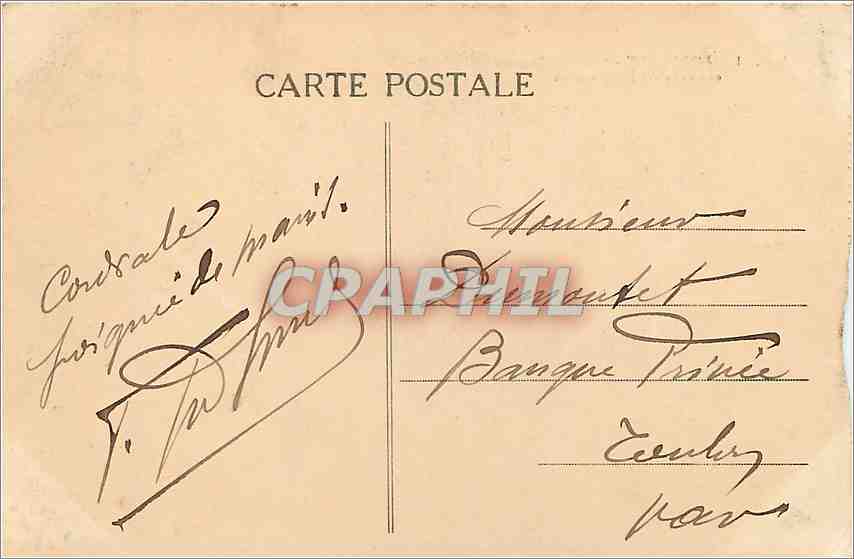 CARTE POSTALE
Cordiale
poignée de mains.
CRAPHIL
Monsieur
Dumontet
Banque Privée
Toulon
Var